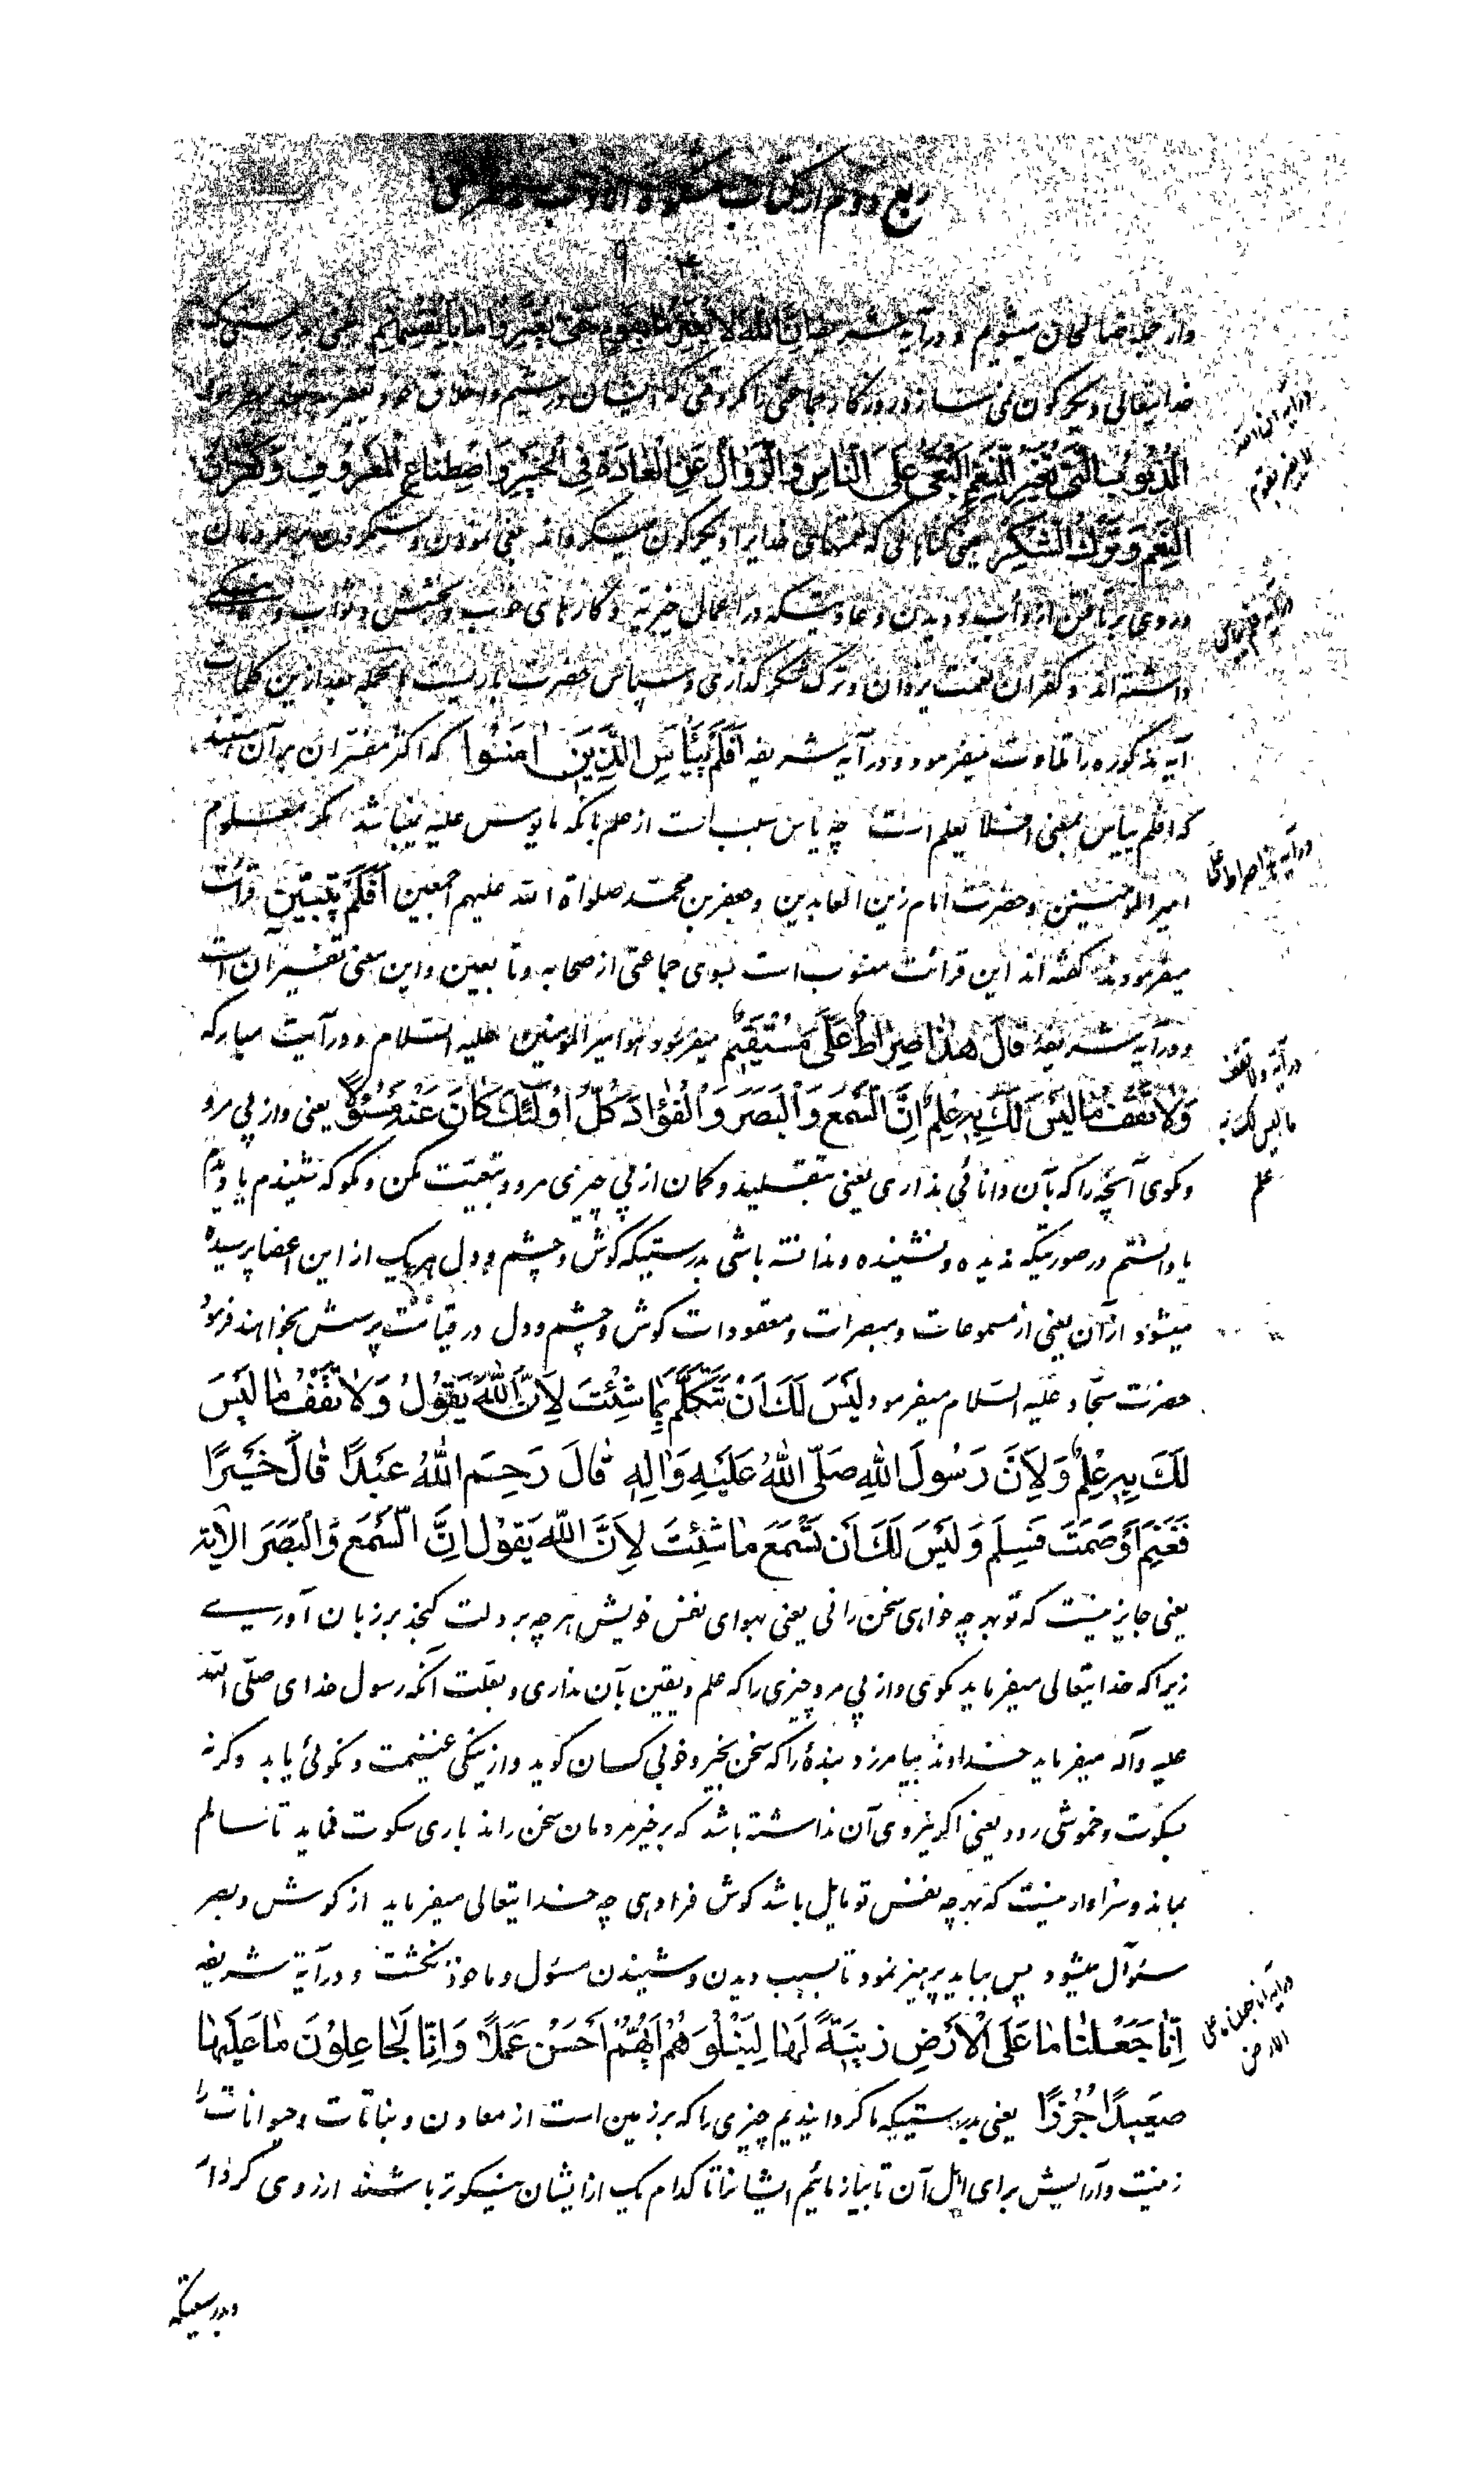 ربع دوم از کتاب مشکوة الادب
واز جمله صالحان میشویم و در آیه شریفه اِنَّ اللهَ لا یُغَیِّرُ ما بِقَومٍ حَتّی یُغَیِّروا ما بِاَنفُسِهِم یعنی بدرستیکه
خدایتعالی دیگرگون نمی سازد روزگار جماعتی را مگر وقتی که ایشان
اَلذُّنُوبُ الَّتی تُغَیِّرُ النِّعَمَ اَلبَغیُ عَلَی النّاسِ وَالزَّوالُ عَنِ العادَةِ فِی الخَیرِ وَاصطِناعِ المَعرُوفِ وَکُفرانُ
النِّعَمِ وَتَرکُ الشُّکرِ یعنی گناهانی که نعمتهای خدایرا دیگرگون میگرداند
وروی برتافتن از دأب و دیدن و عادتیکه در اعمال خیریه و کارهای خوب و بخشش و ثواب و
داشته اند و کفران نعمت یزدان و ترک شکر گذاری و سپاس حضرت باریست آنگاه بعد ازین کلمات
آیه مذکوره را تلاوت میفرمود و در آیه شریفه اَفَلَم یَیأَسِ الَّذینَ امَنُوا که اکثر مفسّران بر آن هستند
که افلم ییأس بمعنی افلا یعلم است چه یأس سبب است از علم بآنکه مایوس علیه نمیباشد مگر معلوم
امیر المؤمنین و حضرت امام زین العابدین و جعفر بن محمّد صلواة الله علیهم اجمعین اَفَلَم یَتَبَیَّن قرائت
میفرمودند گفته اند این قرائت منسوب است بسوی جماعتی از صحابه و تابعین و این معنی تفسیر آن است
و در آیه شریفه قالَ هذا صِراطٌ عَلَیَّ مُستَقیمٌ میفرمود هو امیر المؤمنین علیه السّلام و در آیت مبارکه
وَلا تَقفُ ما لَیسَ لَکَ بِهِ عِلمٌ اِنَّ السَّمعَ وَالبَصَرَ وَالفُؤادَ کُلُّ اُولئِکَ کانَ عَنهُ مَسئُولًا یعنی واز پی مرو
ومگوی آنچه را که بآن دانائی نداری یعنی بتقلید و گمان از پی چیزی مرو و تبعیّت مکن و مگو که شنیدم یا دیدم
یا دانستم در صورتیکه ندیده و نشنیده و ندانسته باشی بدرستیکه گوش و چشم و دل هر یک از این اعضا پرسیده
میشود از آن یعنی از مسموعات و مبصرات و معقودات گوش و چشم و دل در قیامت پرسش بخواهند فرمود
حضرت سجّاد علیه السّلام میفرمود لَیسَ لَکَ اَن تَتَکَلَّمَ بِما شِئتَ لِاَنَّ اللهَ یَقُولُ وَلا تَقفُ ما لَیسَ
لَکَ بِهِ عِلمٌ وَلِاَنَّ رَسُولَ اللهِ صَلَّی اللهُ عَلَیهِ وَالِهِ قالَ رَحِمَ اللهُ عَبدًا قالَ خَیرًا
فَغَنِمَ اَو صَمَتَ فَسَلِمَ وَلَیسَ لَکَ اَن تَسمَعَ ما شِئتَ لِاَنَّ اللهَ یَقُولُ اِنَّ السَّمعَ وَالبَصَرَ الایَه
یعنی جایز نیست که تو بهر چه خواهی سخن رانی یعنی بهوای نفس خویش هر چه بر دلت گنجد بر زبان آوری
زیرا که خدایتعالی میفرماید مگوی واز پی مرو چیزی را که علم و یقین بآن نداری و بعلّت آنکه رسول خدای صلّی الله
علیه وآله میفرماید خداوند بیامرزد بنده را که سخن بخیر و خوبی کسان گوید و از نیکی غنیمت و نکوئی یابد وگرنه
بسکوت و خموشی رود یعنی اگر نیروی آن نداشته باشد که بر خیر مردمان سخن راند باری سکوت نماید تا سالم
بماند و سزاوار نیست که بهر چه نفس تو مایل باشد گوش فرا دهی چه خدایتعالی میفرماید از گوش و بصر
سئوال میشود پس بباید پرهیز نمود تا بسبب دیدن و شنیدن مسئول و ماخوذ نگشت و در آیة شریفه
اِنّا جَعَلنا ما عَلَی الاَرضِ زینَةً لَها لِنَبلُوَهُم اَیُّهُم اَحسَنُ عَمَلًا وَاِنّا لَجاعِلُونَ ما عَلَیها
صَعیدًا جُرُزًا یعنی بدرستیکه ما گردانیدیم چیزی را که بر زمین است از معادن و نباتات و حیوانات را
زینت و آرایش برای اهل آن تا بیازمائیم ایشانرا تا کدام یک از ایشان نیکوتر باشند از روی کردار
وبدرستیکه
در آیه ان الله
لا یغیر بقوم
در آیه هذا صراط علی
در آیه ولا تقف
ما لیس لک به
علم
در آیه انا جعلنا ما علی
الارض